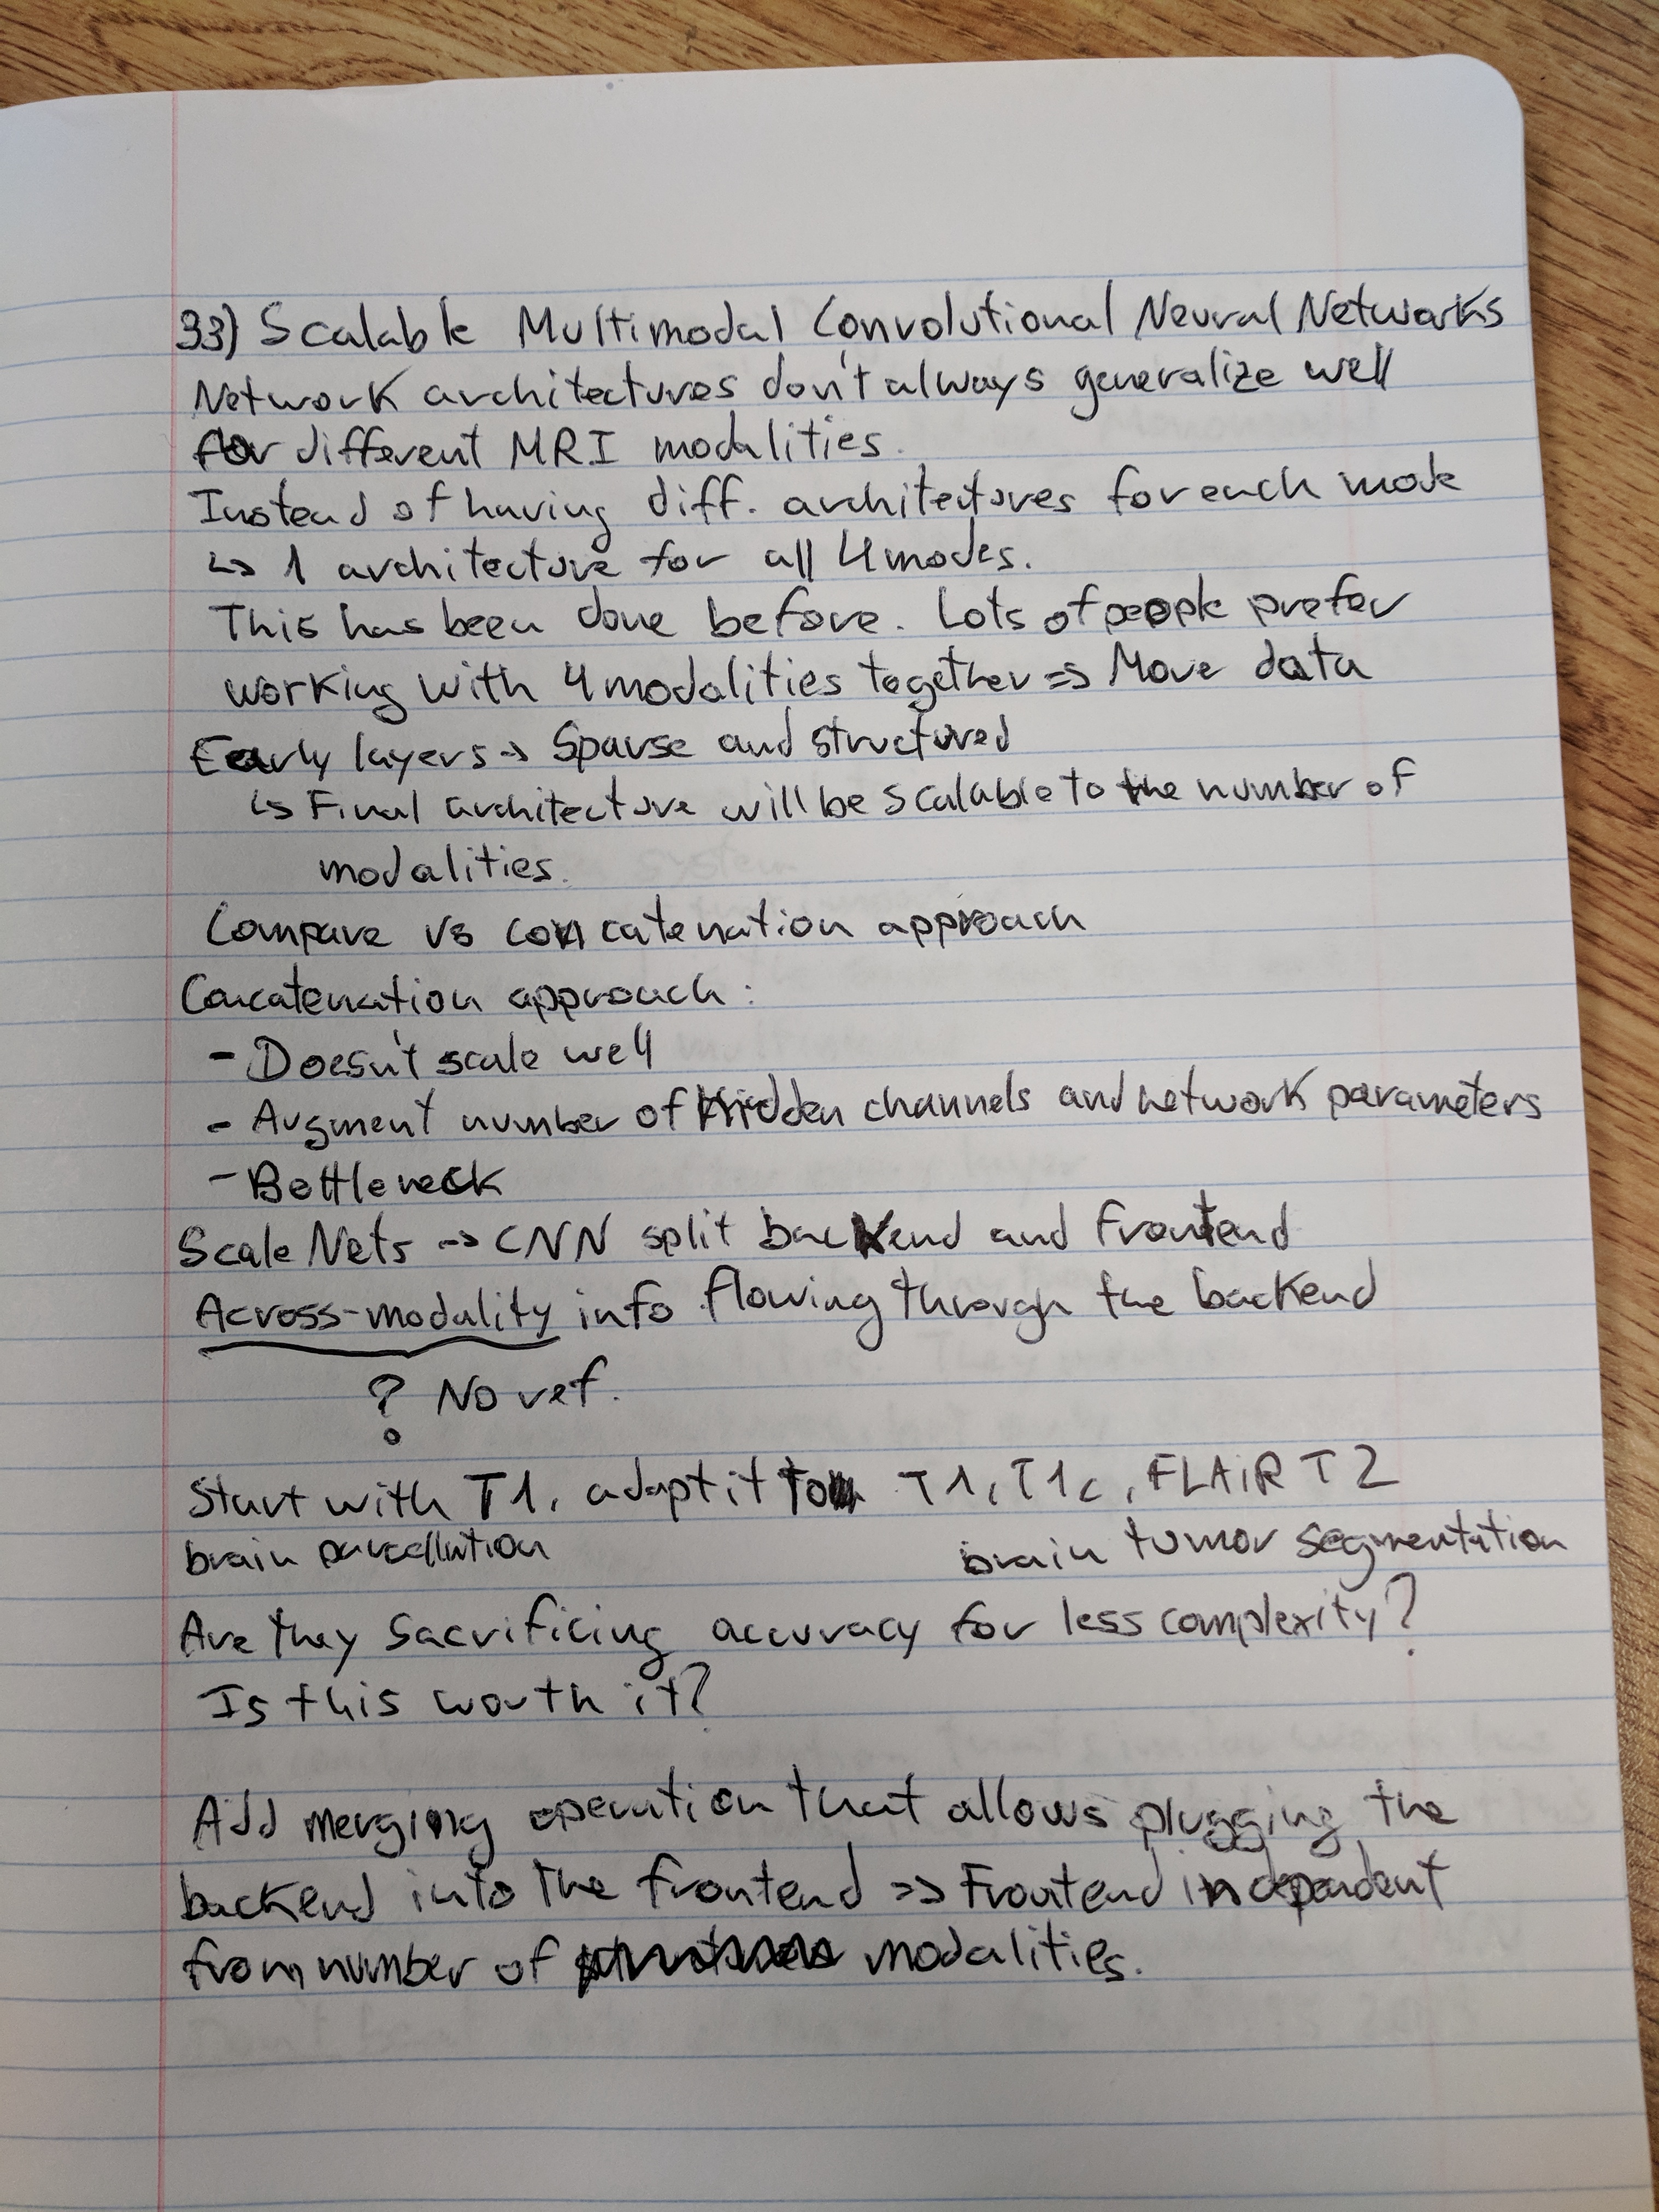 33) Scalable Multimodal Convolutional Neural Networks
Network architectures don't always generalize well
for different MRI modalities.
Instead of having diff. architectures for each mode
↳ 1 architecture for all 4 modes.
This has been done before. Lots of people prefer
working with 4 modalities together => More data
Early layers → Sparse and structured
↳ Final architecture will be scalable to the number of
modalities.
Compare vs concatenation approach
Concatenation approach:
- Doesn't scale well
- Augment number of hidden channels and network parameters
- Bottleneck
Scale Nets → CNN split backend and frontend
Across-modality info flowing through the backend
? No ref.
Start with T1, adapt it to T1, T1c, FLAIR T2
brain parcellation brain tumor segmentation
Are they sacrificing accuracy for less complexity?
Is this worth it?
Add merging operation that allows plugging the
backend into the frontend => Frontend independent
from number of modalities.